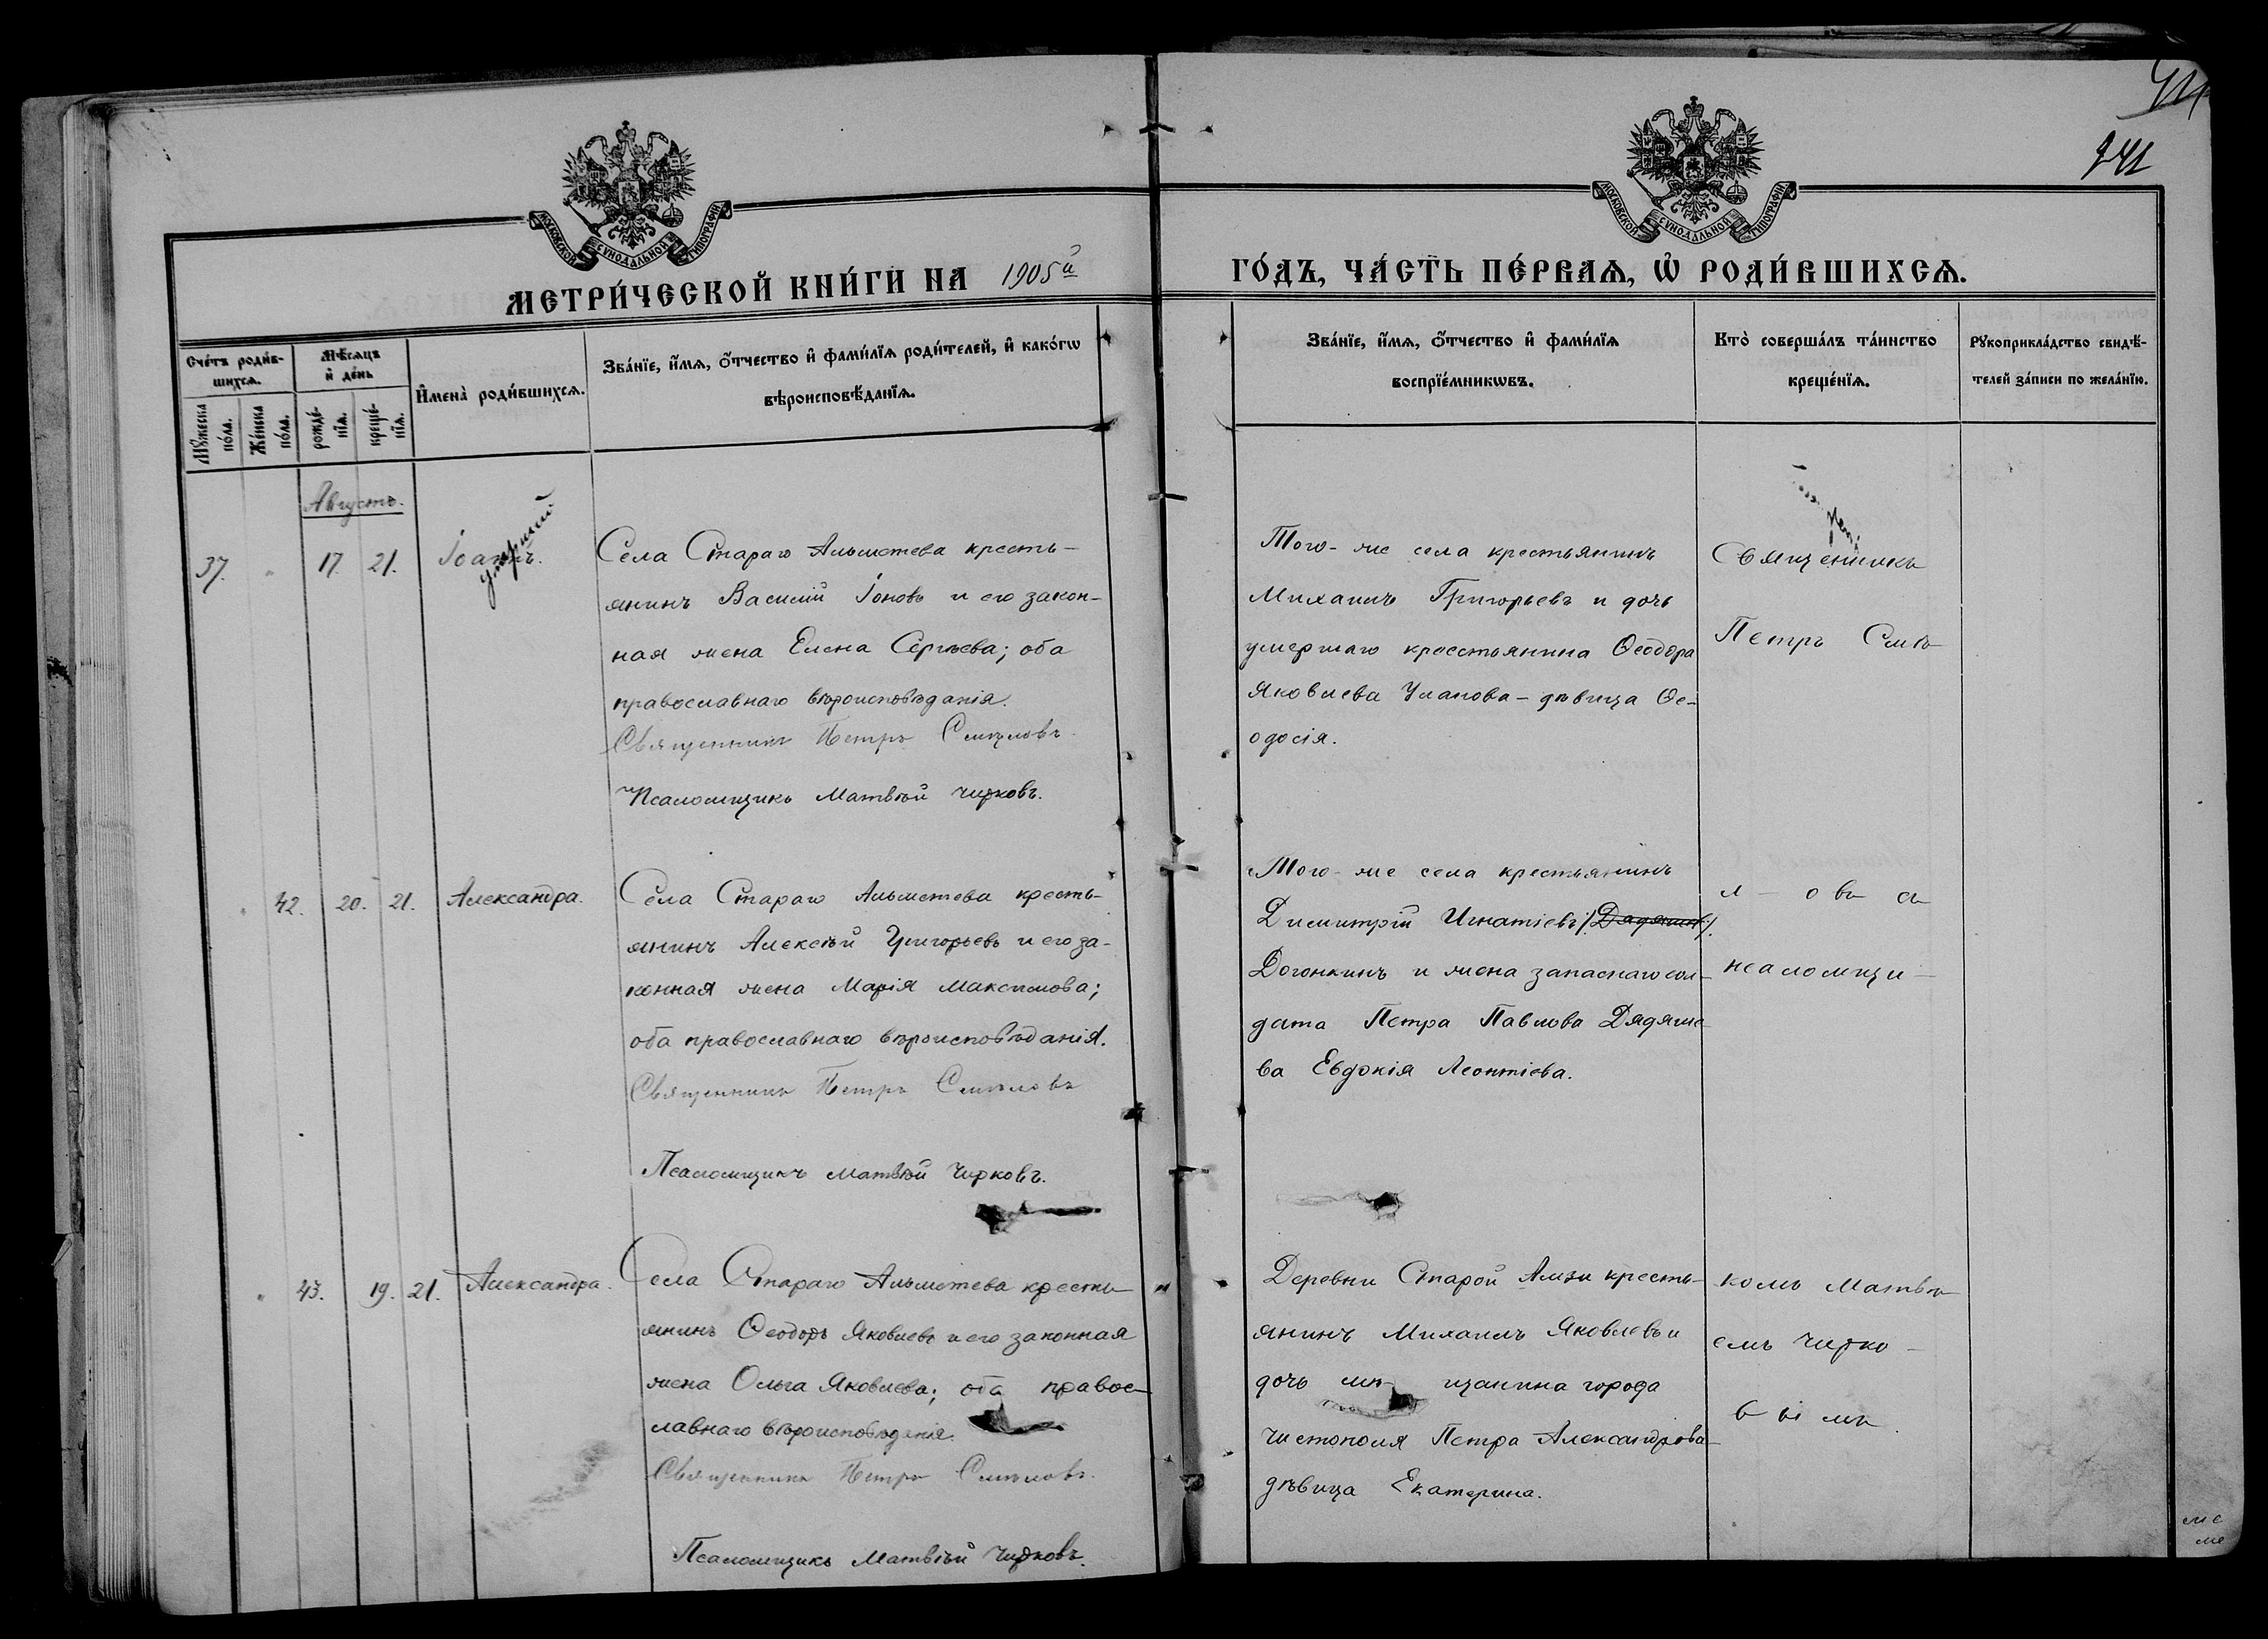 241
МОСКОВСКОЙ СѴНОДАЛЬНОЙ ТИПОГРАФІИ
МОСКОВСКОЙ СѴНОДАЛЬНОЙ ТИПОГРАФІИ
МЕТРИ́ЧЕСКОЙ КНИ́ГИ НА 1905й
ГО́ДЪ, ЧА́СТЬ ПЕ́РВАѦ, Ѡ҆ РОДИ́ВШИХСѦ.
Сче́тъ роди́в-
шихсѧ.
Мꙋ́жеска
по́ла.
Же́нска
по́ла.
Мѣ́сѧцъ
и҆ де́нь
рожде́-
нїѧ.
креще́-
нїѧ.
И҆мена̀ роди́вшихсѧ.
Зва́нїе, и҆́мѧ, ѻ҆́тчество и҆ фами́лїѧ роди́телей, и҆ како́гѡ
вѣроисповѣ́данїѧ.
Зва́нїе, и҆́мѧ, ѻ҆́тчество и҆ фами́лїѧ
воспрїе́мникѡвъ.
Кто̀ соверша́лъ та́инство
креще́нїѧ.
Рꙋкоприкла́дство свидѣ́-
телей за́писи по жела́нїю.
Августъ.
37.
17.
21.
Іоаннъ.
умерший
Села Стараго Альметева кресть-
янинъ Василій Іоновъ и его закон-
ная жена Елена Сергѣева; оба
православнаго вѣроисповѣданія.
Священникъ Петръ Смѣловъ.
Псаломщикъ Матвѣй Чирковъ.
Того-же села крестьянинъ
Михаилъ Григорьевъ и дочь
умершаго кресстьянина Ѳеодора
Яковлева Уланова - дѣвица Ѳе-
одосія.
Священникъ
Петръ Смѣ-
42.
20.
21.
Александра.
Села Стараго Альметева кресть-
янинъ Алексѣй Григорьевъ и его за-
конная жена Марія Максимова;
оба православнаго вѣроисповѣданія.
Священникъ Петръ Смѣловъ
Псаломщикъ Матвѣй Чирковъ.
Того-же села крестьянинъ
Димитрій Игнатіевъ
Догонкинъ и жена запаснаго сол-
дата Петра Павлова Дядяше-
ва Евдокія Леонтіева.
л - овъ съ
псаломщи -
43.
19.
21.
Александра.
Села Стараго Альметева кресть-
янинъ Ѳеодоръ Яковлевъ и его законная
жена Ольга Яковлева; оба правос-
лавнаго вѣроисповѣданія.
Священникъ Петръ Смѣловъ.
Псаломщикъ Матвѣй Чирковъ.
Деревни Старой Амзи кресть-
янинъ Михаилъ Яковлевъ и
дочь мѣ- щанина города
Чистополя Петра Александрова-
дѣвица Екатерина.
комъ Матвѣ-
емъ Чирко -
вымъ.